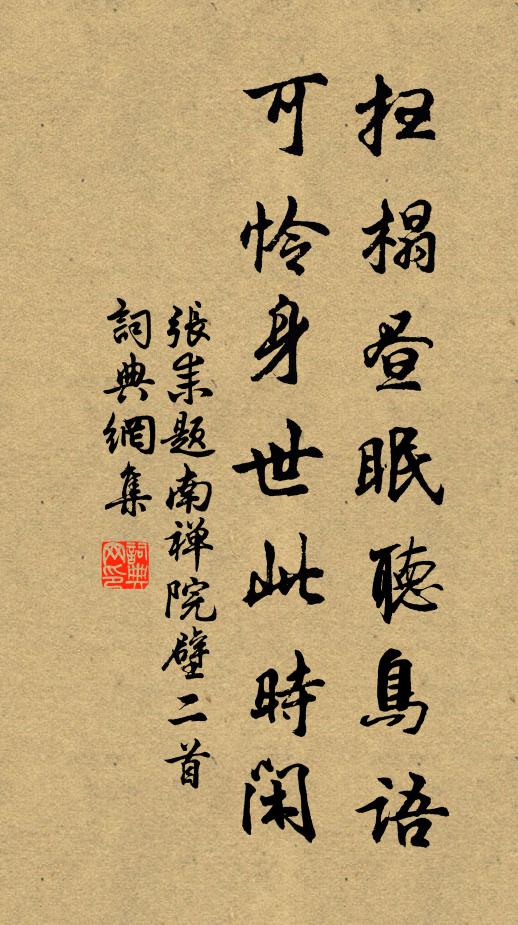 扫榻昼眠聽鳥語
可怜身世此時闲
張耒题南禅院壁二首
詞典網集
詞典网印